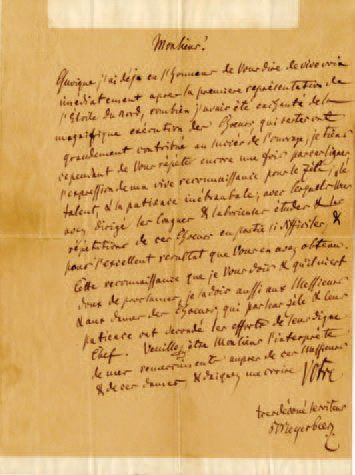 Monsieur!
Quoique j'ai déja eu l'honneur de Vous dire de vive voix
imediatement apres la premiere représentation de
l'Etoile du Nord, combien j'avais été enchanté de la
magnifique exécution des Choeurs, qui certes ont
grandement contribué au succès de l'ouvrage, je tiens
cependant de Vous répéter encore une fois par ces lignes
l'expression de ma vive reconnaissance pour le zèle, le
talent, & la patience inébranlable, avec lesquels Vous
avez dirigé les longues & laborieuses études & les
répétitions de ces Choeurs en partie si difficiles &
pour l'excellent resultat que Vous en avez obtenu.
Cette reconnaissance que je Vous dois & qu'il m'est
doux de proclamer, je la dois aussi aux Messieurs
& aux dames des choeurs, qui par leur zèle & leur
patience ont secondé les efforts de leur digne
Chef. Veuillez être Monsieur l'interprête
de mes remerciments aupres de ces Messieurs
& de ces dames, & daignez me croire Votre
tres dévoué serviteur
Meyerbeer